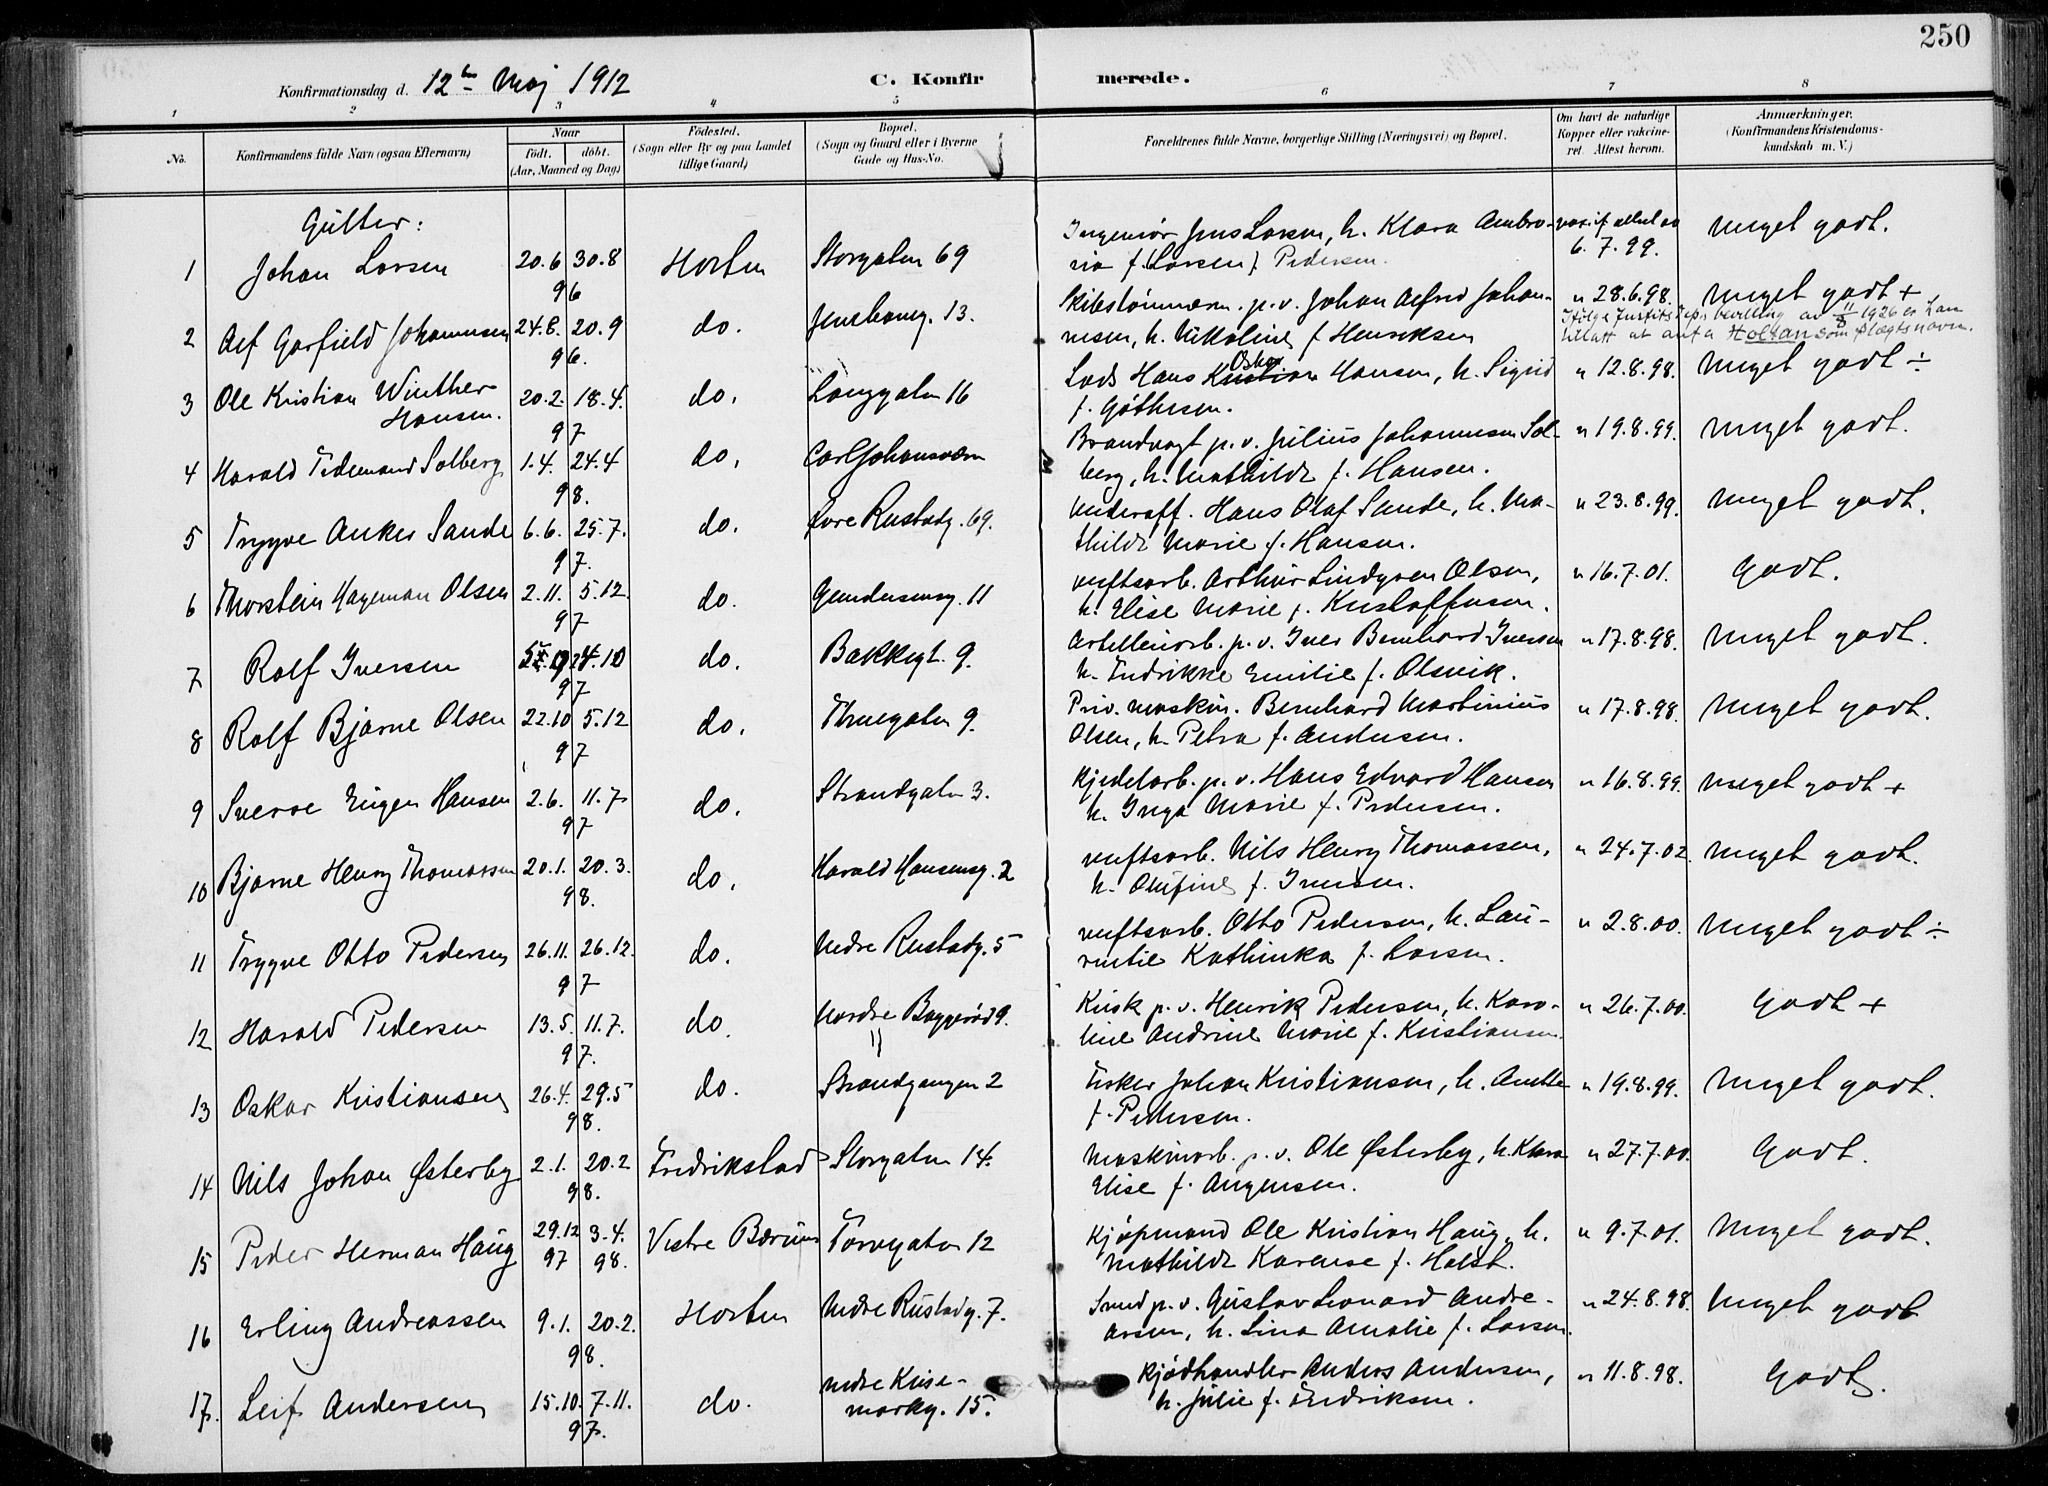 250
Konfirmationsdag d. 12te Maj 1912
C. Konfirmerede.
1 2 3 4 5 6 7 8
No.
Konfirmandens fulde Navn (ogsaa Efternavn)
Naar
født. døbt.
(Aar, Maaned og Dag)
Fødested.
(Sogn eller By og paa Landet
tillige Gaard)
Bopæl.
(Sogn og Gaard eller i Byerne
Gade og Hus-No.
Forældrenes fulde Navne, borgerlige Stilling (Næringsvei) og Bopæl.
Om havt de naturlige
Kopper eller vakcine-
ret. Attest herom.
Anmærkninger.
(Konfirmandens Kristendoms-
kundskab m. V.)
Gutter:
1 Johan Larsen 20.6 30.8 96 Horten Storgaten 69
Ingeniør Jens Larsen, h. Klara Ambro-
sia f. (Larsen) Pedersen.
6.7.99. meget godt.
2 Alf Garfield Johannesen 24.8. 20.9 96. do. 13.
Skibstømmerm. p.v. Johan Alfred Johan-
nesen, h. Nikoline f Henriksen
" 28.6.98. meget godt +
Ifølge Justits Dep.s bevilling av 11/8 1926 er han
tillatt at anta Holtan som slegtsnavn.
3 Ole Kristian Winther
Hansen. 20.2. 18.4. 97 do. Langgaten 16
Lods Hans Kristian Oskar Hansen, h. Sigrid
f. Gøthesen.
" 12.8.98. meget godt ÷
4 Harald Tidemand Solberg 1.4. 24.4 98. do. Carljohansværn
Brandvagt p.v. Julius Johannesen Sol-
berg, h. Mathilde f. Hansen.
" 19.8.99. meget godt.
5 Trygve Anker Sande 6.6. 25.7. 97. do. Øvre Rustadg. 69.
Underoff. Hans Olaf Sande, h. Ma-
thilde Marie f. Hansen.
" 23.8.99. meget godt.
6 Thorstein Hageman Olsen 2.11. 5.12. 97 do. Gundersensg. 11
verftsarb. Arthur Lindgren Olsen,
h. Elise Marie f. Kristoffersen.
" 16.7.01. Godt.
7 Rolf Iversen 24.10 97 do. Bakkegt. 9.
Artilleriarb. p.v. Iver Bernhard Iversen
h. Fredrikke Emilie f. Olsvik.
" 17.8.98. meget godt.
8 Rolf Bjarne Olsen 22.10 5.12 97 do. Thuegaten 9.
Priv. maskin. Bernhard Martinius
Olsen, h. Petra f. Andersen.
" 17.8.98. meget godt.
9 Sverre Eugen Hansen 2.6. 11.7 97 do. Strandgaten 3.
Kjedelarb. p.v. Hans Edvard Hansen
h. Inga Marie f. Pedersen.
" 16.8.99. meget godt +
10 Bjarne Henry Thomassen 20.1. 20.3. 98. do. Harald Hansensg. 2
verftsarb. Nils Henry Thomassen,
h. Olufine f. Iversen.
" 24.7.02. meget godt.
11 Trygve Otto Pedersen 26.11. 26.12. 97 do. Nedre Rustadg. 5
verftsarb. Otto Pedersen, h. Lau-
rentie Kathinka f. Larsen.
" 2.8.00. meget godt ÷
12 Harald Pedersen 13.5. 11.7. 97. do. Nordre Baggerød 9.
Kusk p.v. Henrik Pedersen, h. Karo-
line Andrine Marie f. Kristiansen.
" 26.7.00. Godt +
13 Oskar Kristiansen 26.4. 29.5 98. do. Strandgangen 2
Fisker Johan Kristiansen, h. Anette
f. Pedersen.
" 19.8.99. meget godt.
14 Nils Johan Østerby 2.1. 20.2 98. Fredrikstad Storgaten 14.
Maskinarb. p.v. Ole Østerby, h. Klara
Elise f. Jørgensen.
" 27.7.00. Godt.
15 Peder Herman Haug 29.12 97 3.4. 98. Vestre Bærum Torvgaten 12
Kjøpmand Ole Kristian Haug, h.
Mathilde Karense f. Holst.
" 9.7.01. meget godt.
16 Erling Andreassen 9.1. 20.2. 98. Horten Nedre Rustadg. 7.
Smed p.v. Gustav Leonard Andre-
assen, h. Lina Amalie f. Larsen.
" 24.8.98. meget godt
17. Leif Andersen 15.10. 7.11. 97. do. Nedre Keise-
markg. 15.
Kjødhandler Anders Andersen,
h. Julie f. Fredriksen.
" 11.8.98. Godt.